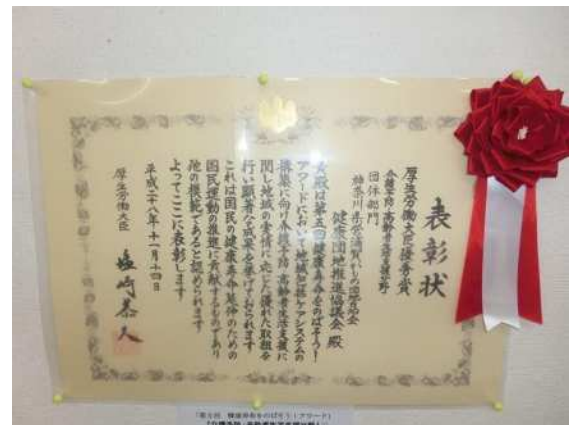 表彰状
厚生労働大臣優秀賞
介護予防・高齢者生活支援分野
団体部門
神奈川県営浦賀かもめ団地自治会
健康団地推進協議会 殿
貴殿は第五回健康寿命をのばそう!
アワードにおいて地域包括ケアシステムの
構築に向け介護予防・高齢者生活支援に
関し地域の実情に応じた優れた取組を
行い顕著な成果を挙げておられます
これは国民の健康寿命延伸のための
国民運動の推進に貢献するものであり
他の模範であると認められます
よってここに表彰します
平成二十八年十一月十四日
厚生労働大臣 塩崎恭久
「第5回 健康寿命をのばそう!アワード」